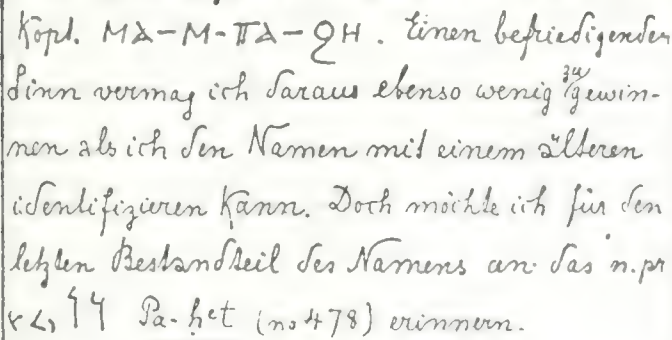 Kopt. ⲙⲁ-ⲙ-ⲡⲁ-ϩⲏ. Einen befriedigenden
Sinn vermag ich daraus ebenso wenig zu gewin-
nen als ich den Namen mit einem älteren
identifizieren kann. Doch möchte ich für den
letzten Bestandteil des Namens an das n. pr
Pa-ḥet (no 478) erinnern.